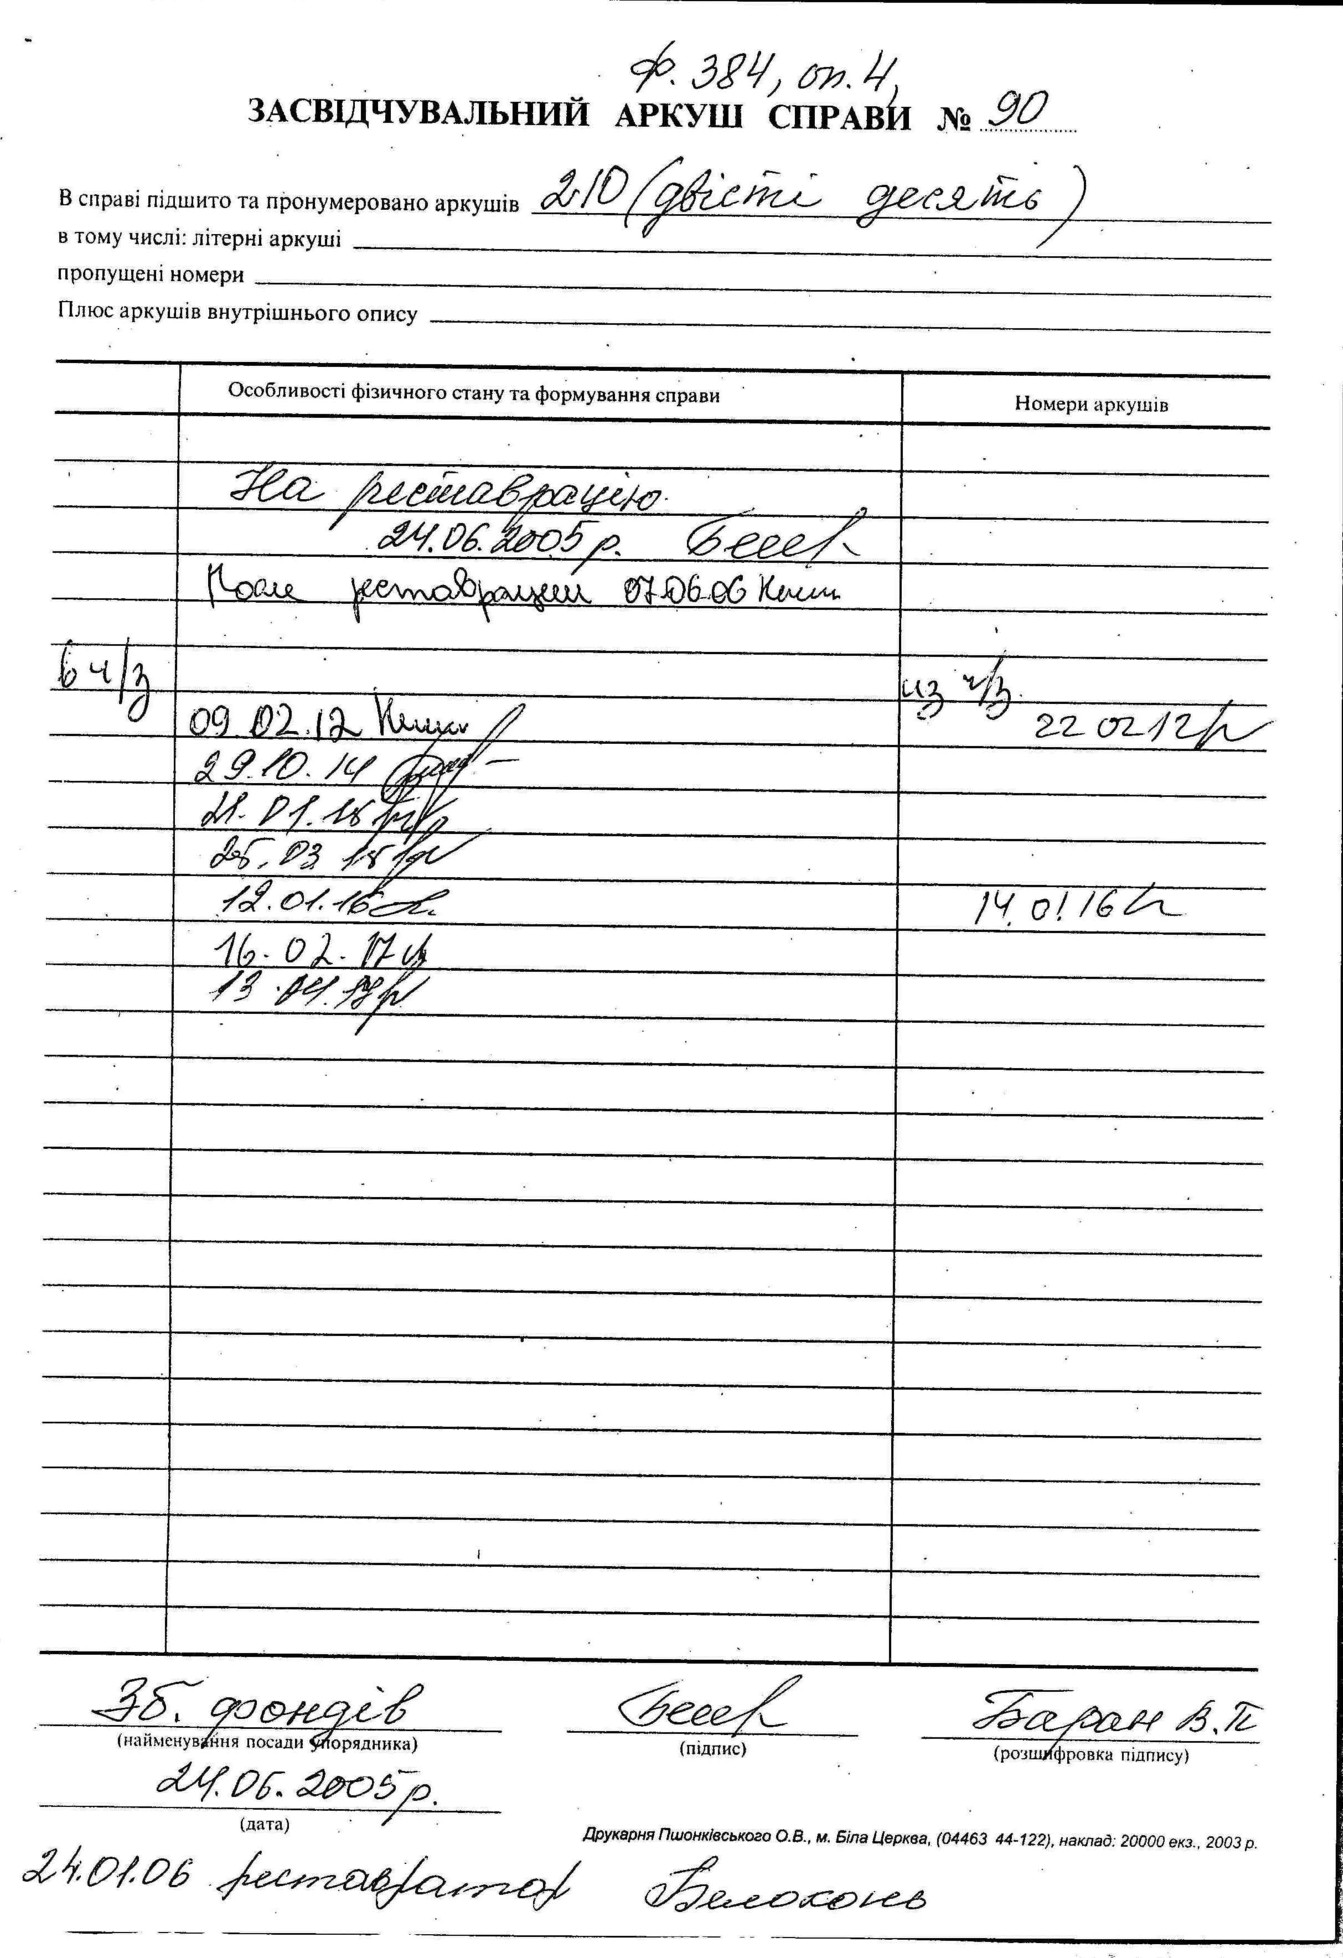 ф. 384, оп. 4,
ЗАСВІДЧУВАЛЬНИЙ АРКУШ СПРАВИ № 90
В справі підшито та пронумеровано аркушів 210 (двісті десять)
в тому числі: літерні аркуші
пропущені номери
Плюс аркушів внутрішнього опису
Особливості фізичного стану та формування справи Номери аркушів
На реставрацію
24.06.2005 р.
После реставрации 07.06.06
в ч/з из ч/з
09.02.12 22 02 12
29.10.14
21.01.15
25.03 15
12.01.16 14.01.16
16.02.17
13.04.17
Зб. фондів Баран В.П
(найменування посади упорядника) (підпис) (розшифровка підпису)
24.06.2005 р.
(дата)
Друкарня Пшонківського О.В., м. Біла Церква, (04463 44-122), наклад: 20000 екз., 2003 р.
24.01.06 реставратор Белоконь